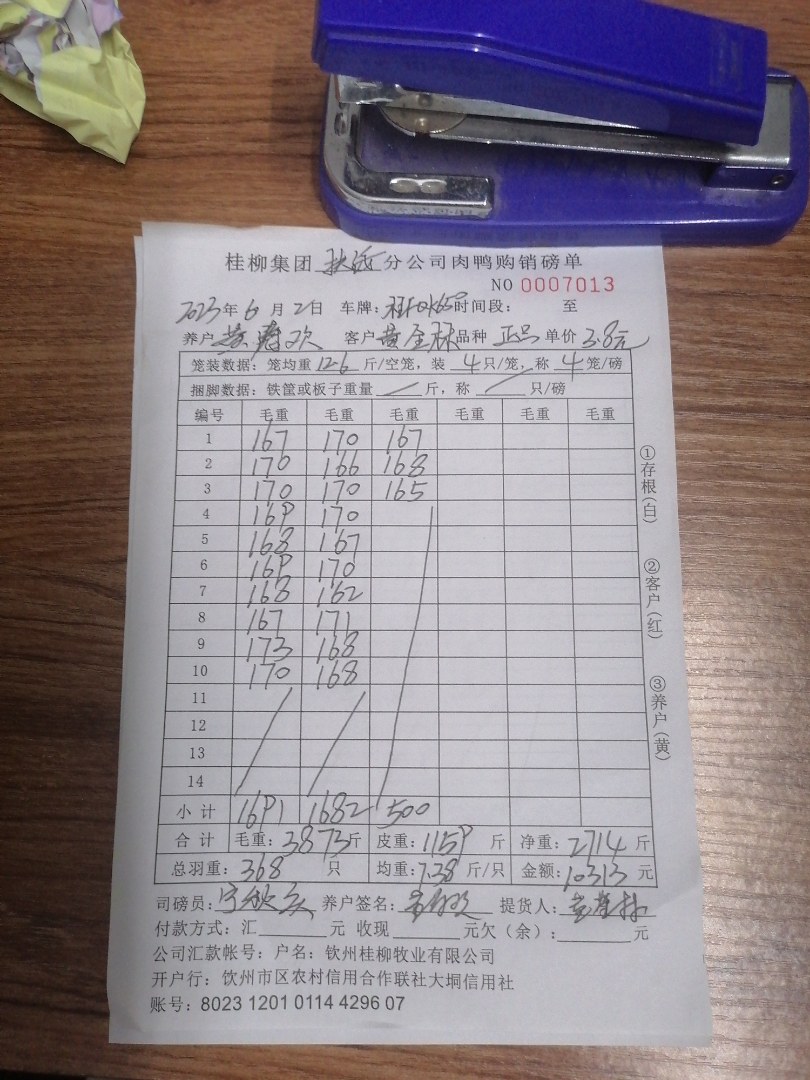 桂柳集团 扶绥 分公司肉鸭购销磅单
NO 0007013
2023年 6 月 2 日 车牌： 时间段： 至
养户 黄 欢 客户 黄全林 品种 正品 单价 3.8元
笼装数据：笼均重 12.6 斤/空笼，装 4 只/笼，称 4 笼/磅
捆脚数据：铁筐或板子重量 斤，称 只/磅
编号 毛重 毛重 毛重 毛重 毛重 毛重
1 167 170 167
2 170 166 168
3 170 170 165
4 169 170
5 168 167
6 169 170
7 168 162
8 167 171
9 173 168
10 170 168
11
12
13
14
小计 1691 1682 500
合计 毛重：3873斤 皮重：1159 斤 净重：2714 斤
总羽重：368 只 均重：7.38 斤/只 金额：10313 元
司磅员： 养户签名： 提货人：
付款方式：汇 元 收现 元欠（余）： 元
公司汇款帐号：户名：钦州桂柳牧业有限公司
开户行：钦州市区农村信用合作联社大垌信用社
账号：8023 1201 0114 4296 07
①存根（白）
②客户（红）
③养户（黄）